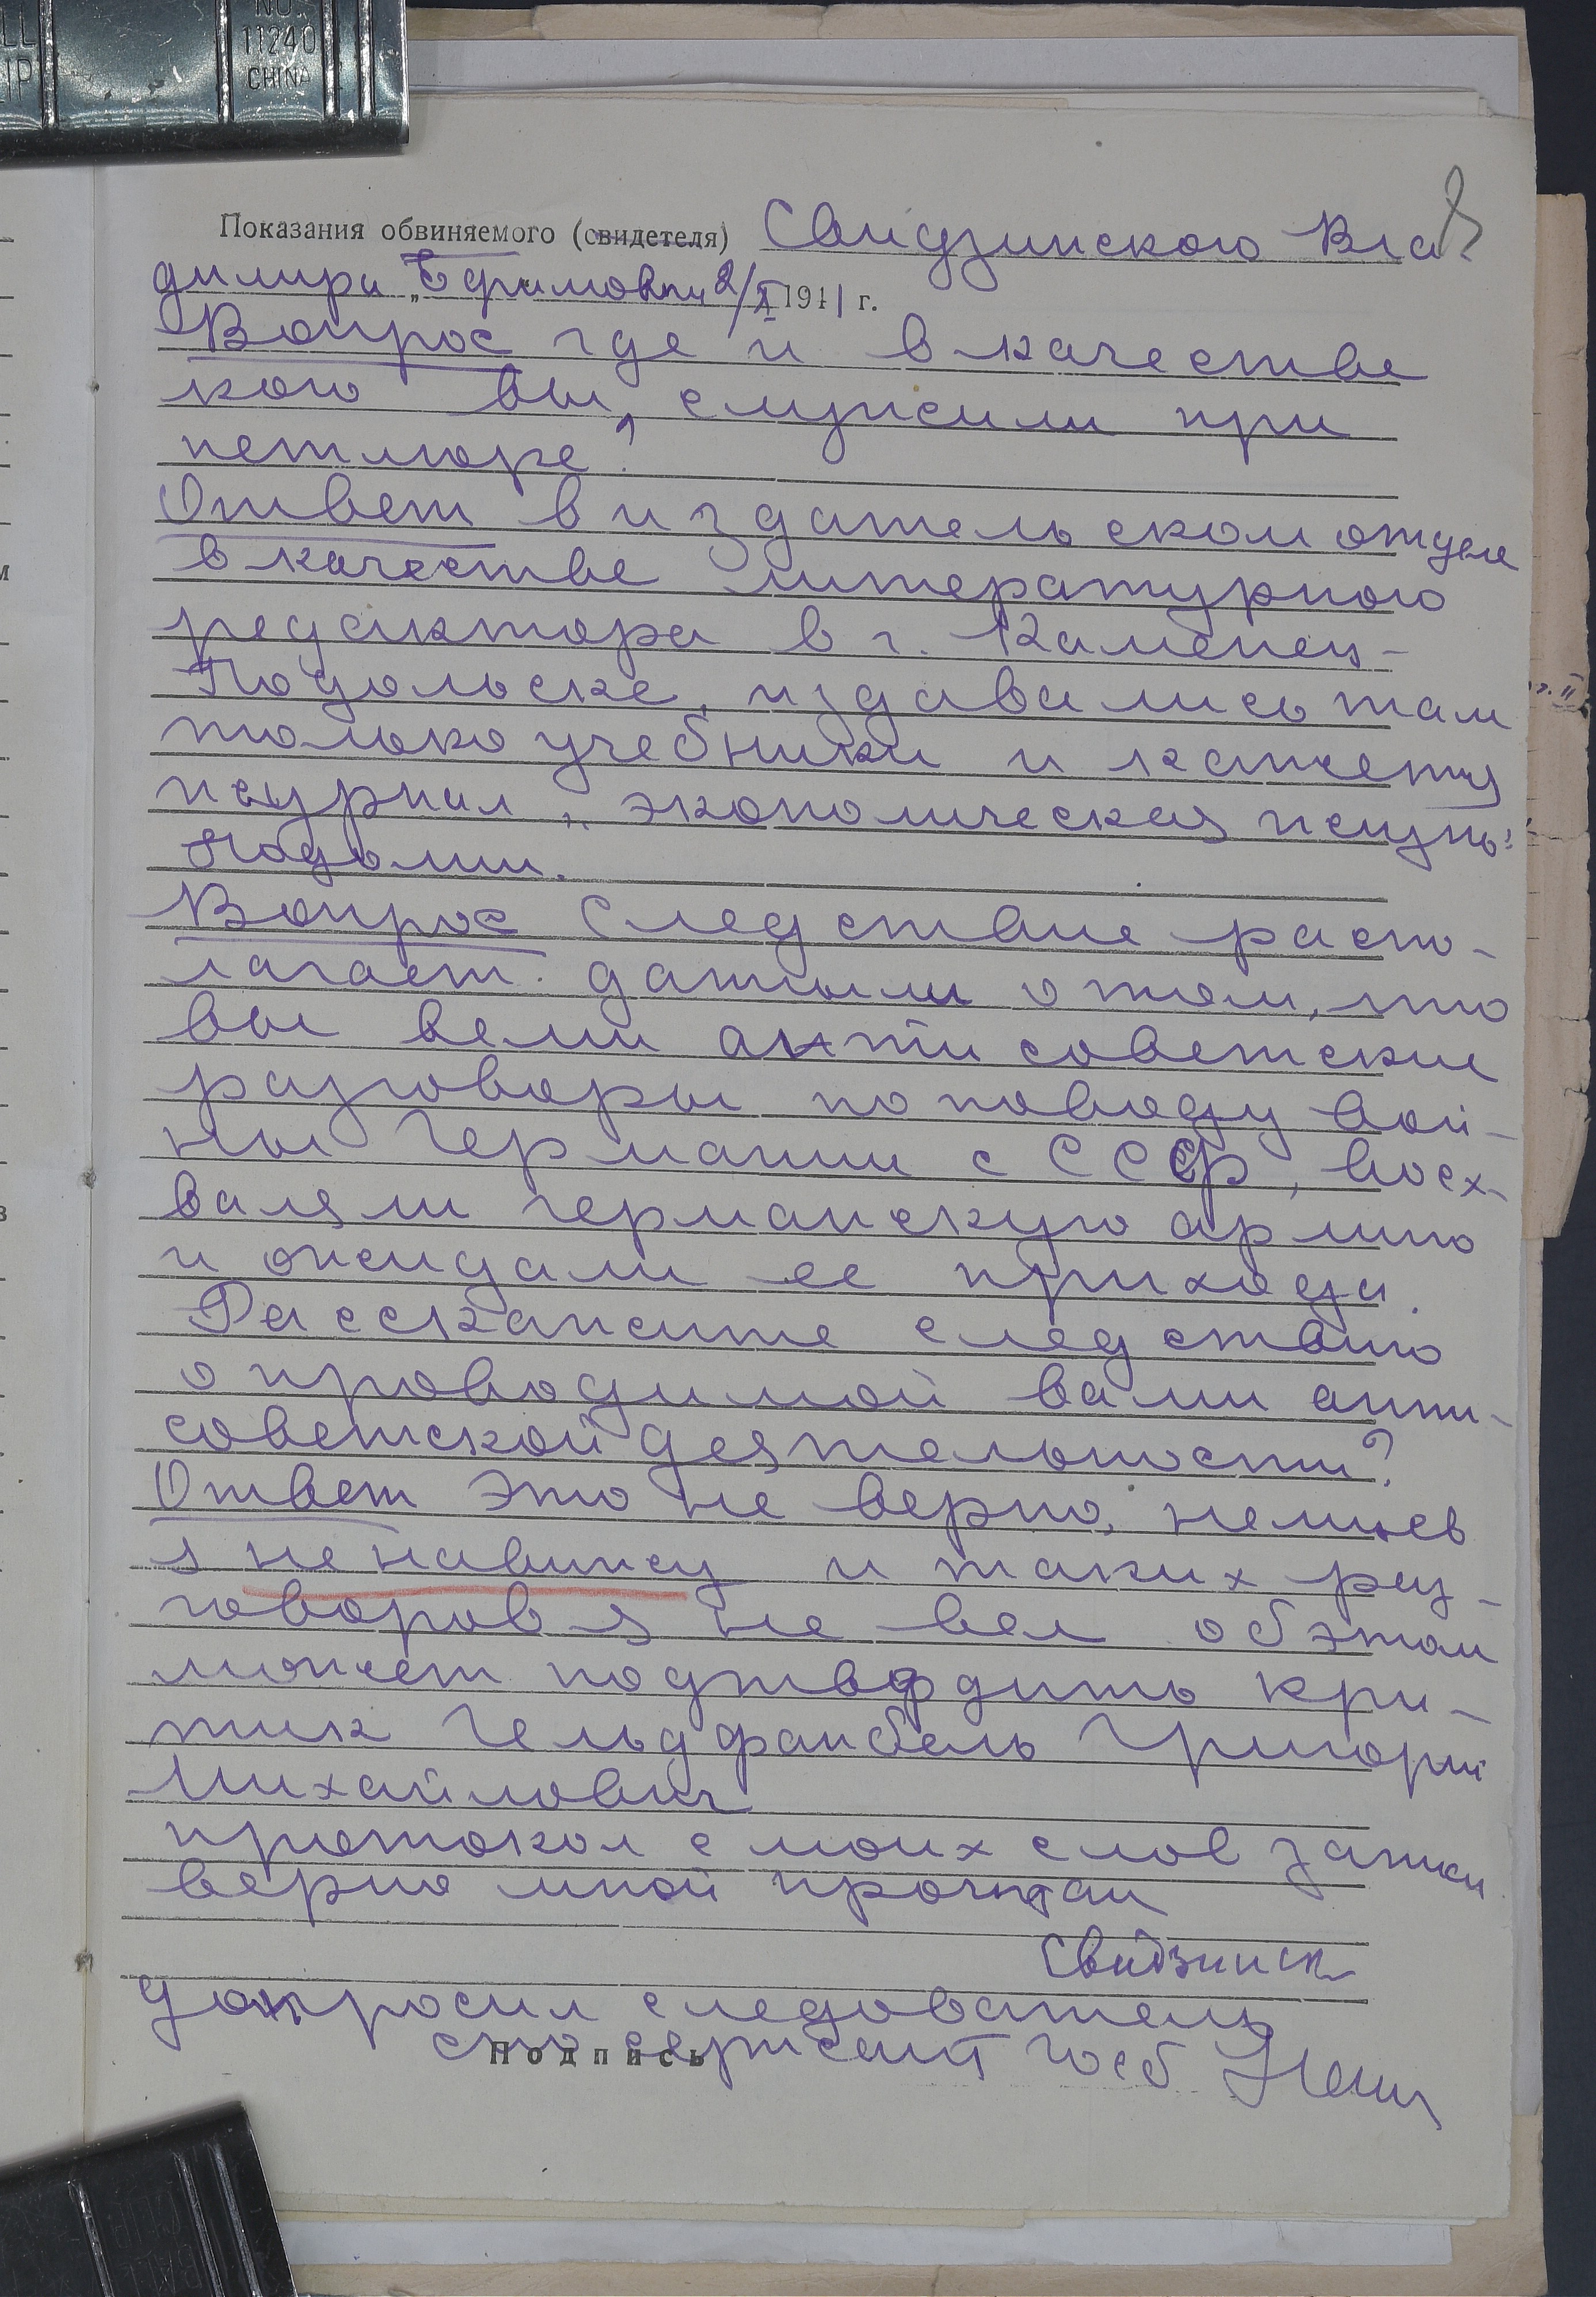 NO.
11240
CHINA
8
Показания обвиняемого (свидетеля) Свидзинского Вла
димира Ефимовича 2/X 1941 г.
Вопрос где и в качестве
кого вы служили при
петлюре?
Ответ в издательском отделе
в качестве литературного
редактора в г. Каменец-
Подольске, издавались там
только учебники и кажется
журнал „экономическая жизнь"
Подолии.
Вопрос Следствие распо-
лагает данными о том, что
вы вели антисоветские
разговоры по поводу вой-
ны Германии с СССР, восх-
валяли германскую армию
и ожидали ее прихода.
Расскажите следствию
о проводимой вами анти-
советской деятельности?
Ответ Это не верно, немцев
я ненавижу и таких раз-
говоров я не вел об этом
может подтвердить кри-
тик Гельдфанбель Григорий
Михайлович
протокол с моих слов записан
верно мной прочитан
Свидзинск
допросил следователь
сержант госб
Подпись